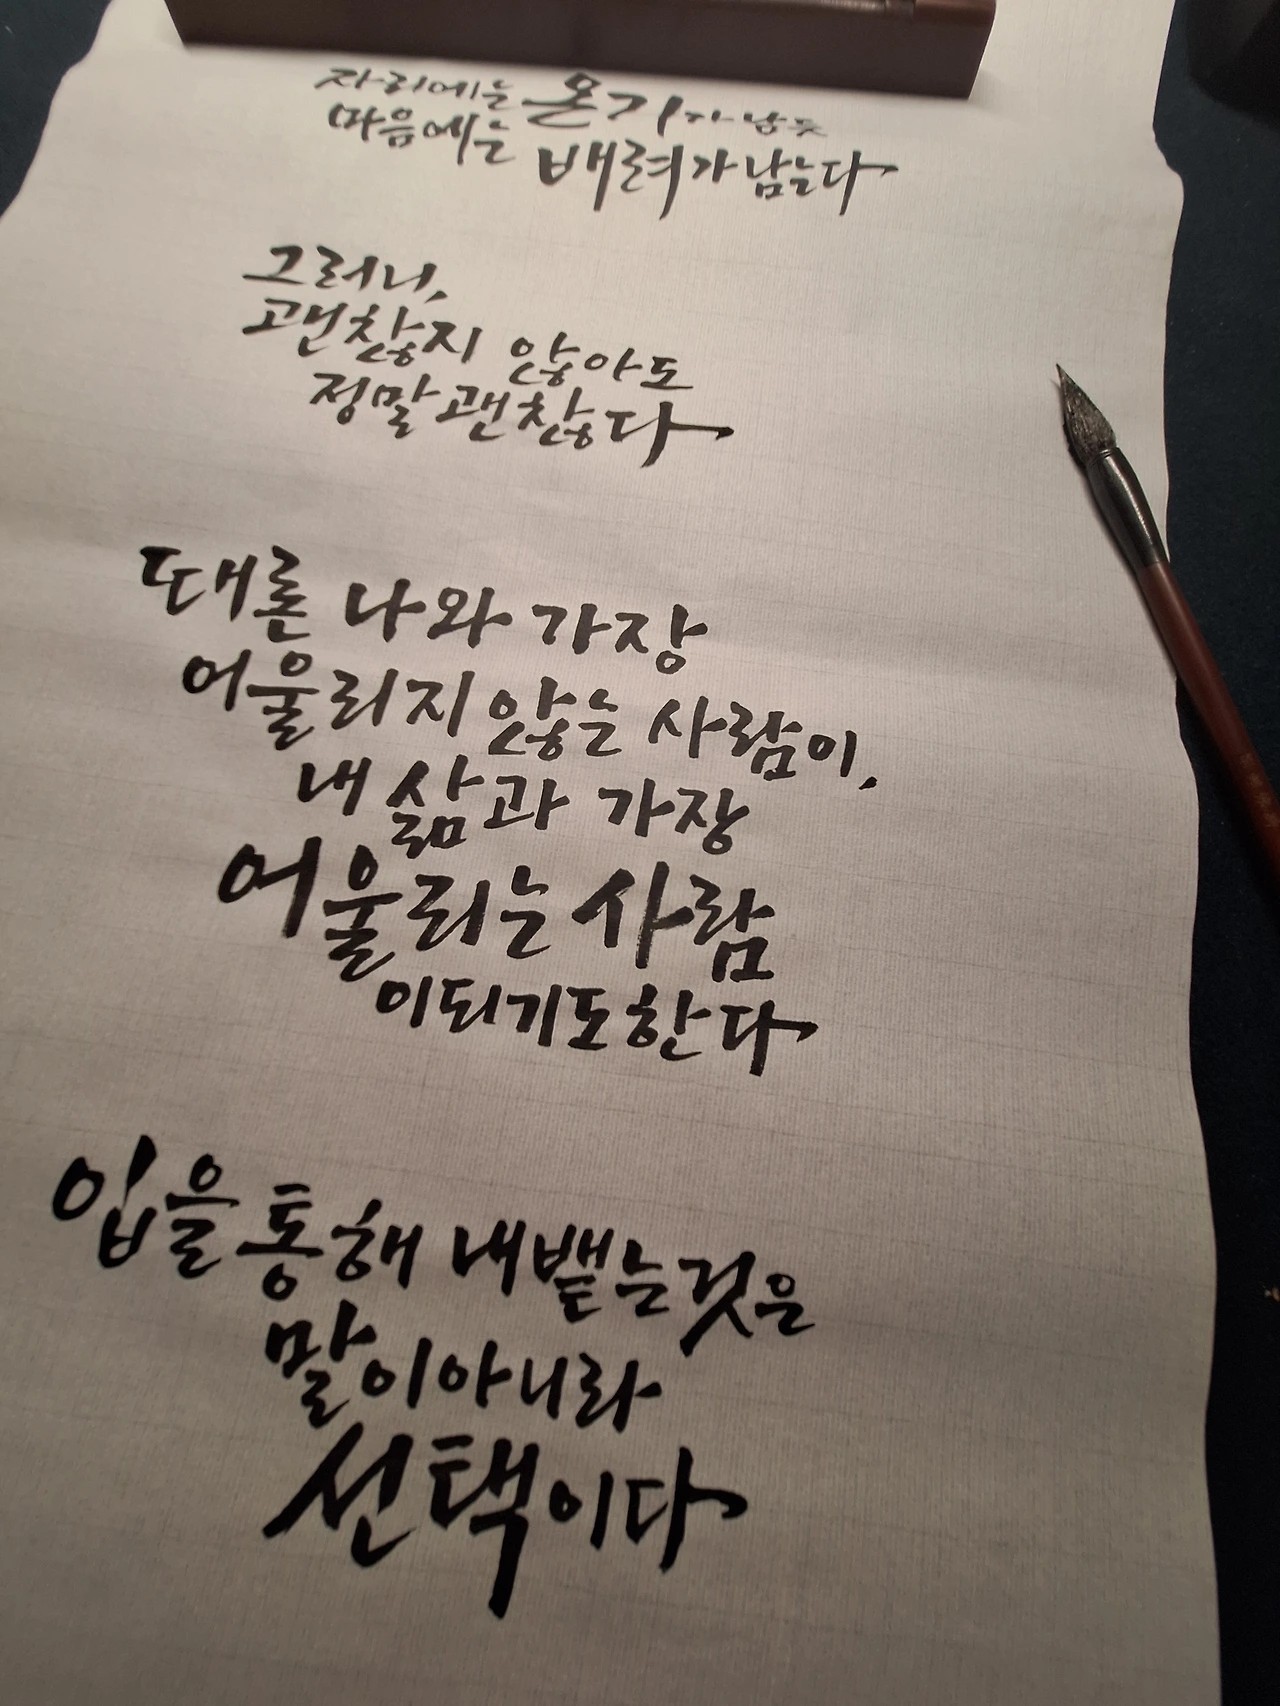 자리에는 온기가 남듯
마음에는 배려가 남는다
그러니,
괜찮지 않아도
정말 괜찮다
때론 나와 가장
어울리지 않는 사람이,
내 삶과 가장
어울리는 사람
이 되기도 한다
입을 통해 내뱉는 것은
말이 아니라
선택이다